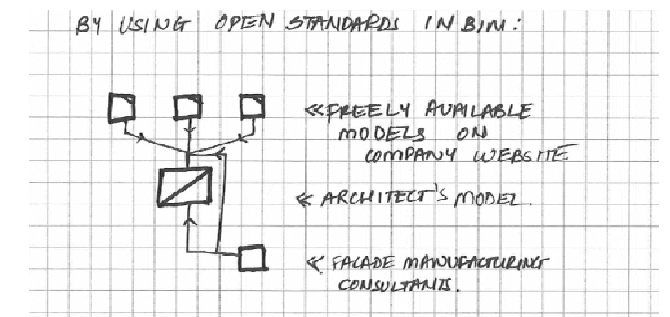 BY USING OPEN STANDARDS IN BIM:
<<FREELY AVAILABLE
MODELS ON
COMPANY WEBSITE
< ARCHITECT'S MODEL.
<< FACADE MANUFACTURING
CONSULTANTS.